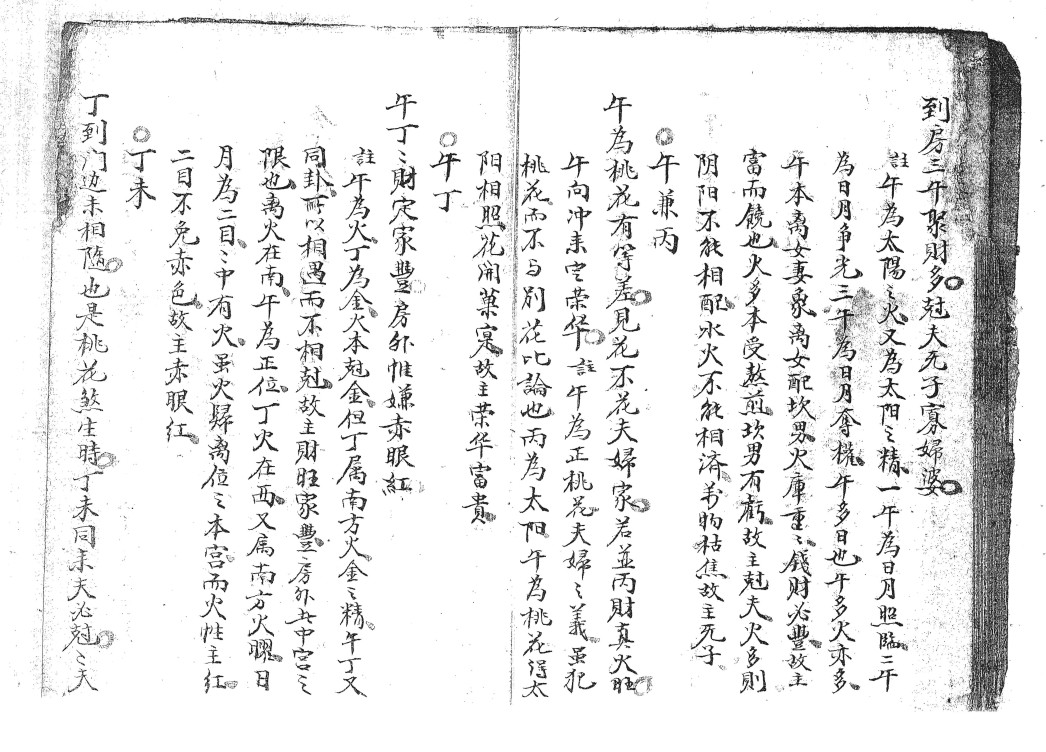 到房三午聚財多尅夫死子寡婦婆
註午為太陽之火又為太阳之精一午為日月照臨二午
為日月争光三午為日月奪權午多日也午多火亦多
午本离女妻象离女配坎男火庫重〻錢財必豐故主
富而饒也火多本受熬煎坎男有虧故主尅夫火多則
阴阳不能相配水火不能相济萬物枯焦故主死子
午兼丙
午為桃花有等差見花不花夫婦家若並丙財真火旺
午向冲来定荣华註午為正桃花夫婦之義虽犯
桃花而不与别花比論也丙為太阳午為桃花得太
阳相照花開菓寔故主荣华富貴
午丁
午丁〻財定家豐房外惟嫌赤眼紅
註午為火丁為金火本尅金但丁属南方火金之精午丁又
同卦所以相遇而不相尅故主財旺家豐房外去中宮之
限也离火在南午為正位丁火在西又属南方火曜日
月為二目〻中有火虽火歸离位之本宮而火性主紅
二目不免赤色故主赤眼紅
丁未
丁到门边未相隨也是桃花煞生時丁未同来夫必尅〻夫